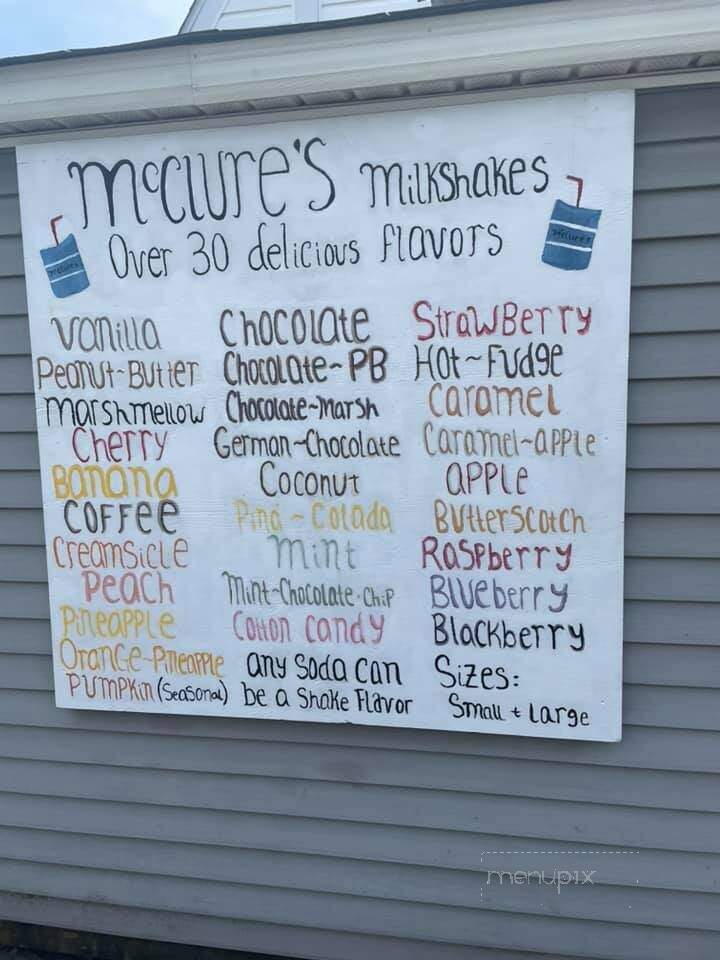 McClure's Milkshakes
Over 30 delicious flavors
McClure's
McClure's
Vanilla
Peanut~Butter
Marshmellow
Cherry
Banana
Coffee
Creamsicle
Peach
Pineapple
Orange~Pineapple
Pumpkin (Seasonal)
Chocolate
Chocolate~PB
Chocolate~Marsh
German~Chocolate
Coconut
Pina~Colada
Mint
Mint~Chocolate-Chip
Cotton Candy
any Soda Can
be a Shake Flavor
StrawBerry
Hot~Fudge
Caramel
Caramel~apple
apple
ButterScotch
Raspberry
Blueberry
Blackberry
Sizes:
Small + Large
menupix